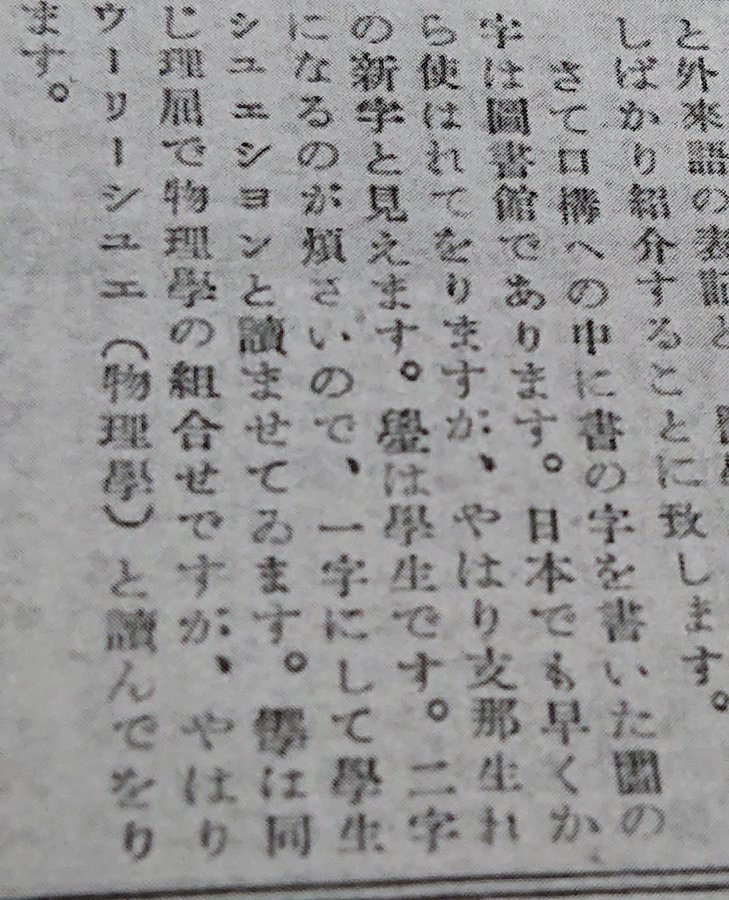 と外來語の表記と
しばかり紹介することに致します。
さて口構への中に書の字を書いた圕の
字は圖書館であります。日本でも早くか
ら使はれてをりますが、やはり支那生れ
の新字と見えます。は學生です。二字
になるのが煩さいので、一字にして學生
シユエシヨンと讀ませてゐます。は同
じ理屈で物理學の組合せですが、やはり
ウーリーシユエ（物理學）と讀んでをり
ます。